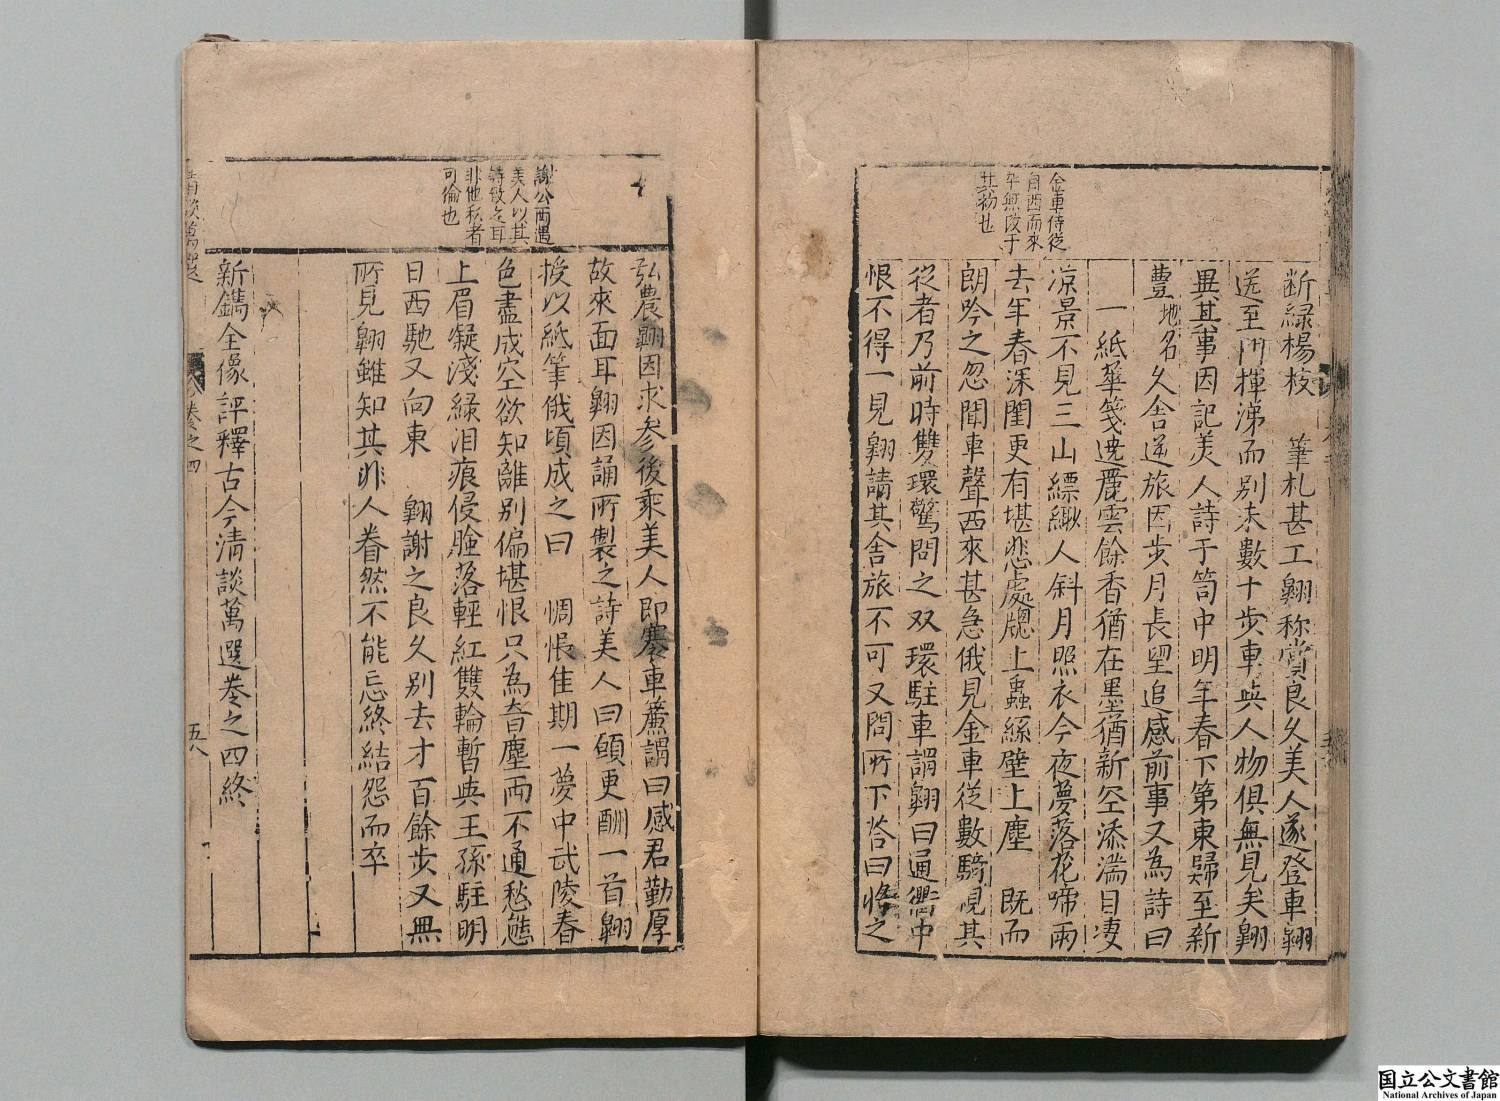 金車侍從
自西而來
年無改于
其初也
断緑楊枝　筆札甚工翱称賞良久美人遂登車翱
送至門揮涕而别未數十步車與人物俱無見矣翱
異其事因記美人詩于笥中明年春下第東歸至新
豐地名夂舍逆旅因步月長望追感前事又為詩曰
一紙華箋遶麗雲餘香猶在墨猶新空添滿目凄
凉景不見三山縹緲人斜月照衣今夜夢落花啼雨
去年春深閨更有堪悲處牕上蟲絲壁上塵　既而
朗吟之忽聞車聲西來甚急俄見金車從數騎視其
從者乃前時雙環驚問之双環駐車謂翱曰通衢中
恨不得一見翱請其舍旅不可又問所下答曰將之
謝公両遇
美人以其
詩故之耳
非他秘者
可倫也
弘農翱因求参後乘美人即褰車簾謂曰感君勤厚
故來面耳翱因誦所製之詩美人曰願更酬一首翱
授以紙筆俄頃成之曰　惆悵佳期一夢中武陵春
色盡成空欲知離别偏堪恨只為音塵両不通愁態
上眉凝淺緑泪痕侵臉落輕紅雙輪暫與王孫駐明
日西馳又向東　翱謝之良久别去才百餘步又無
所見翱雖知其非人眷然不能忘終結怨而卒
新鐫全像評釋古今清談萬選卷之四終
卷之四
五八
国立公文書館
National Archives of Japan